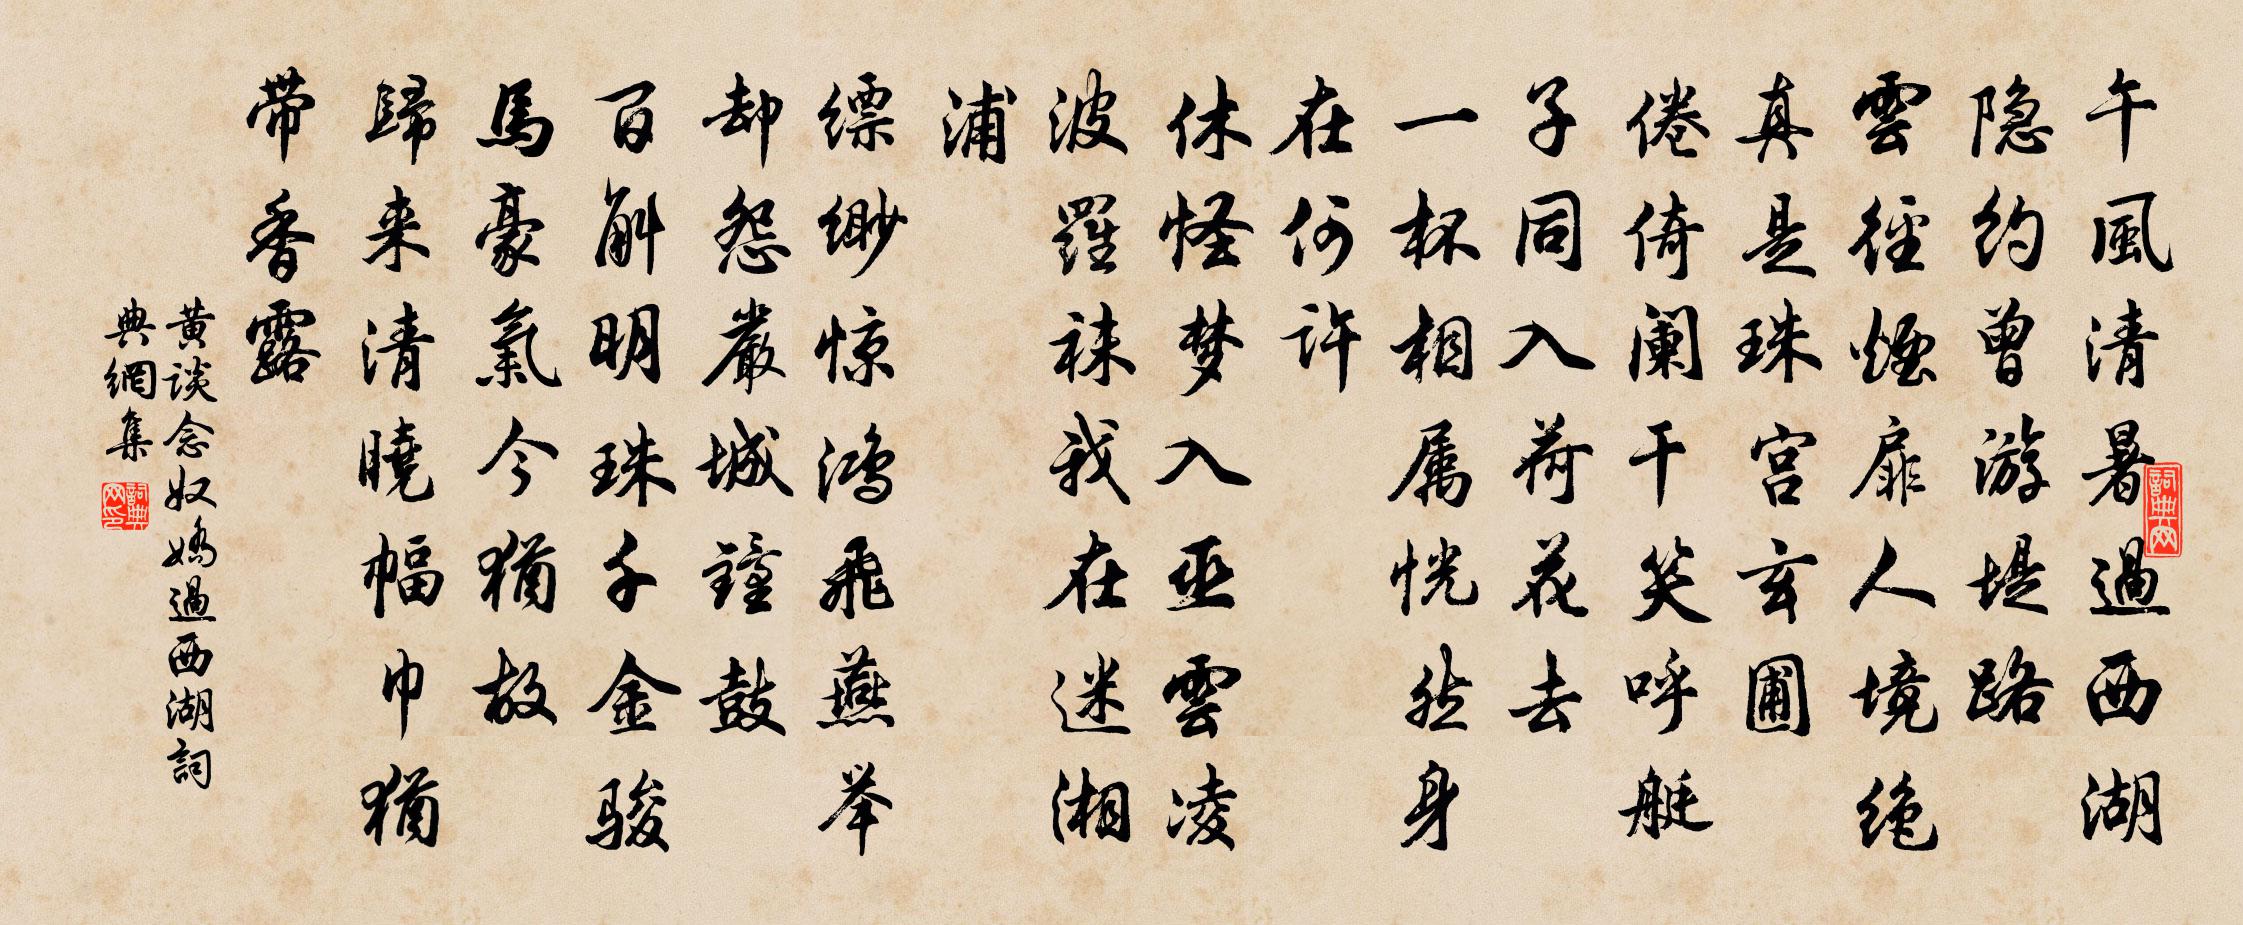 午風清暑過西湖
隐約曾游堤路
雲徑煙扉人境绝
真是珠宫玄圃
倦倚阑干笑呼艇
子同入荷花去
一杯相属恍然身
在何许
休怪梦入巫雲凌
波羅袜我在迷湘
浦
缥缈惊鸿飛燕举
却怨嚴城鐘鼓
百斛明珠千金骏
馬豪氣今猶故
歸来清曉幅巾猶
带香露
黄谈念奴嬌過西湖詞
典網集
詞典网
詞典网印